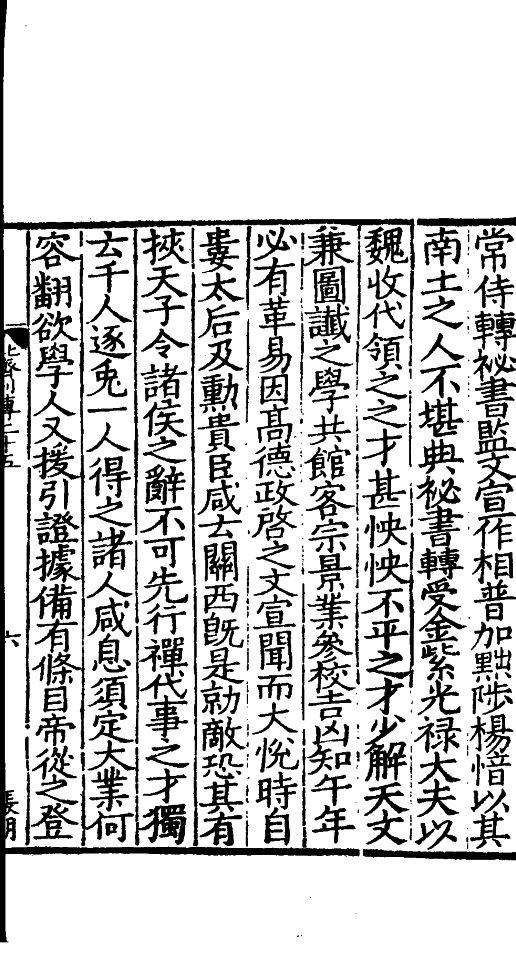 常侍轉祕書監文宣作相普加黜陟楊愔以其
南土之人不堪典祕書轉受金紫光禄大夫以
魏收代領之之才甚怏怏不平之才少解天文
兼圖讖之學共館客宗景業參校吉凶知午年
必有革易因髙德政啓之文宣聞而大恱時自
婁太后及勳貴臣咸云關西旣是勍敵恐其有
挾天子令諸侯之辭不可先行禪代事之才獨
云千人逐兎一人得之諸人咸息須定大業何
容翻欲學人又援引證據備有條目帝從之登
北齊列傳二十五
六